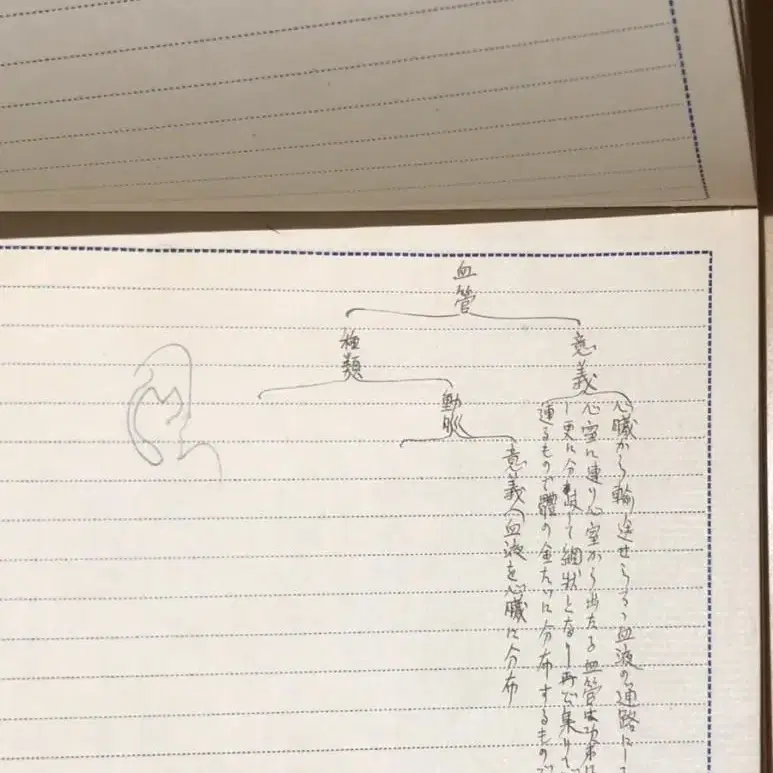 血管
意義
心臓から輸送せらるゝ血液の通路にし
心室に連り心室から出たる血管は
し更に分岐して網状となり再び集りて
連るもので體の全たいに分布するもので
種類
動脈
意義(血液を心臓に分布